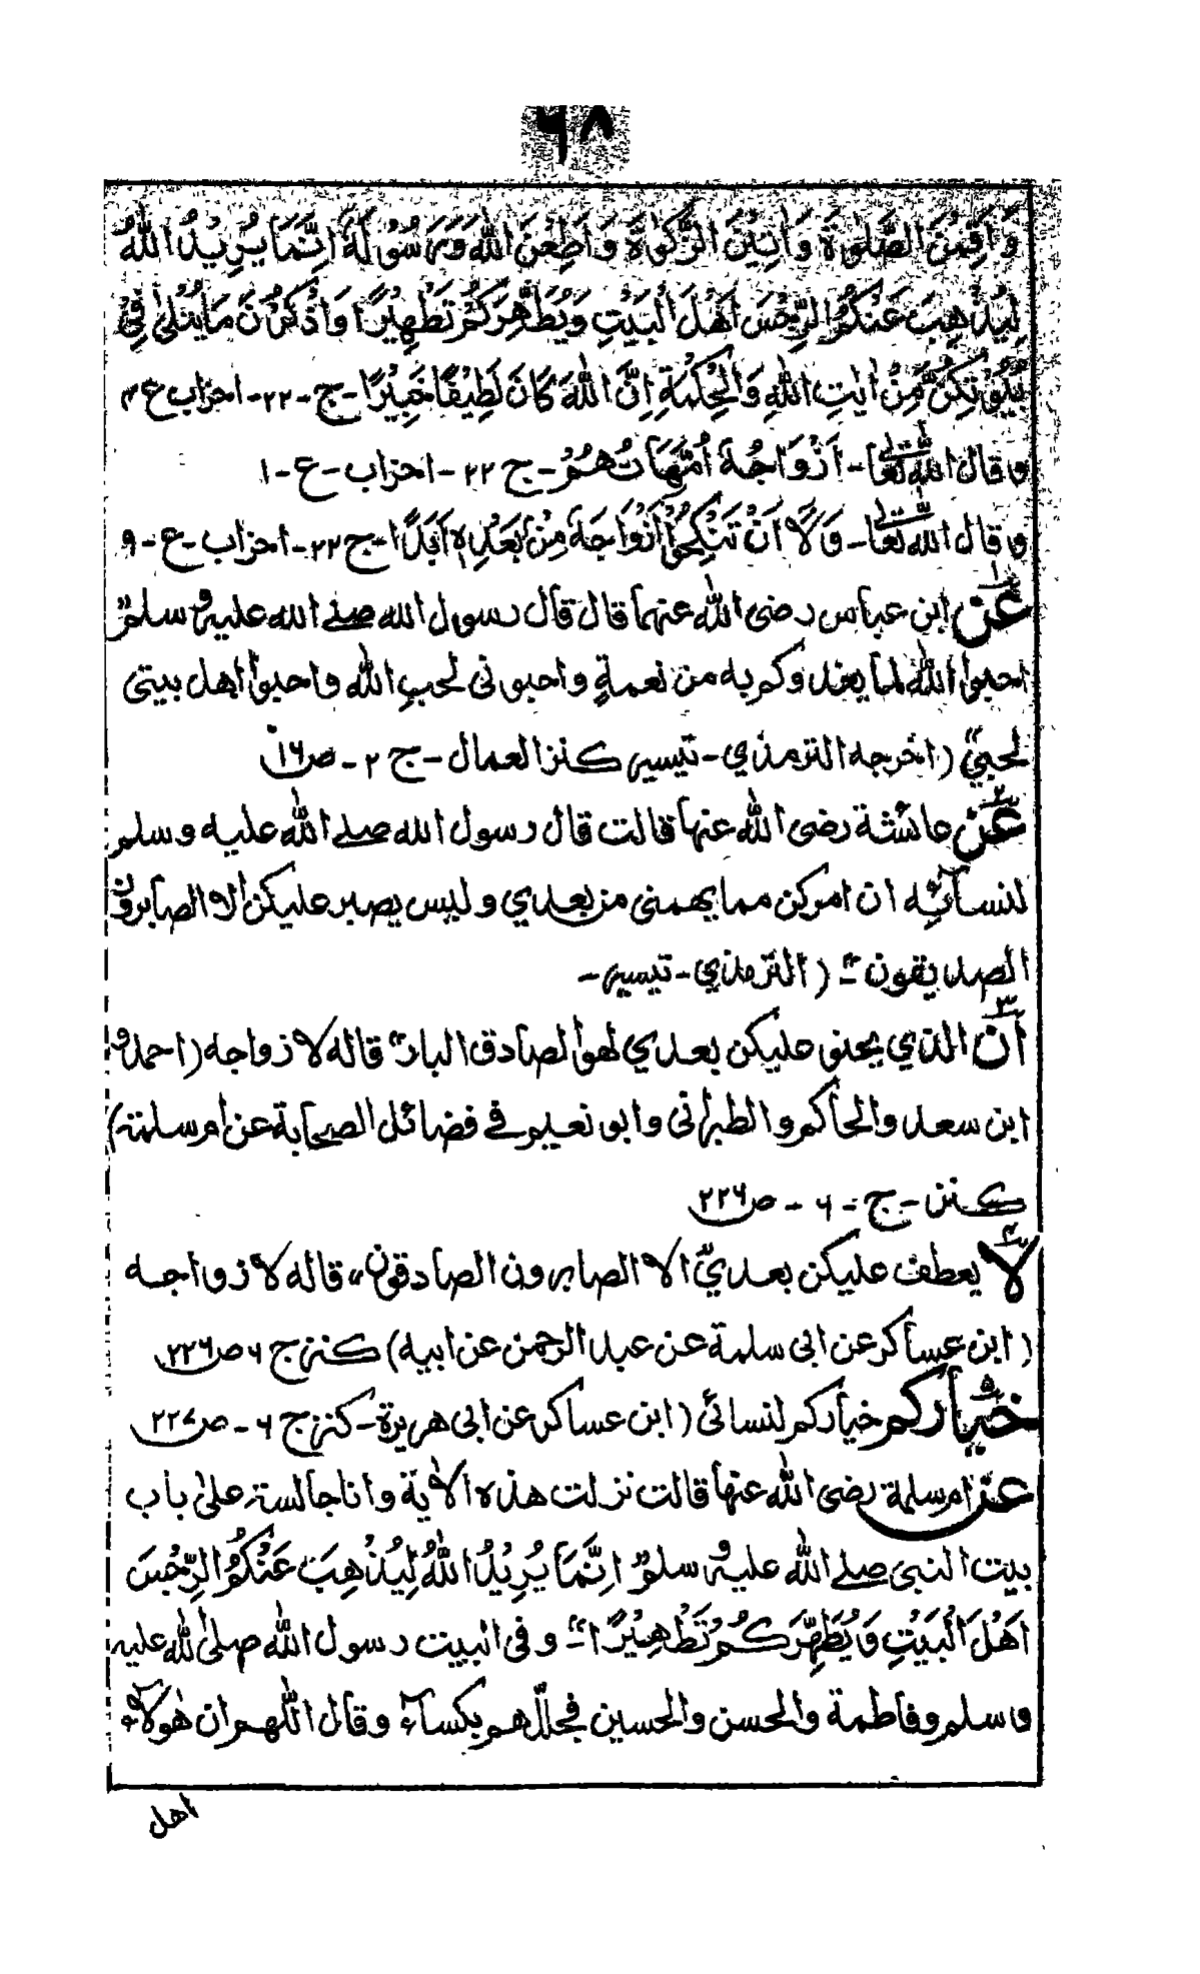 ٦٨
وَاَقِمْنَ الصَّلٰوةَ وَاٰتِيْنَ الزَّكٰوةَ وَاَطِعْنَ اللهَ وَرَسُوْلَهٗ اِنَّمَا يُرِيْدُ اللهُ
لِيُذْهِبَ عَنْكُمُ الرِّجْسَ اَهْلَ الْبَيْتِ وَيُطَهِّرَكُمْ تَطْهِيْرًا وَاذْكُرْنَ مَا يُتْلٰى فِيْ
بُيُوْتِكُنَّ مِنْ اٰيٰتِ اللهِ وَالْحِكْمَةِ اِنَّ اللهَ كَانَ لَطِيْفًا خَبِيْرًا - ج - ٢٢ - احزاب ع ٤
وقال الله تعالى - اَزْوَاجُهٗ اُمَّهَاتُهُمْ - ج ٢٢ - احزاب - ع - ١
وقال الله تعالى - وَلَا اَنْ تَنْكِحُوْا اَزْوَاجَهٗ مِنْ بَعْدِهٖ اَبَدًا - ج ٢٢ - احزاب - ع - ٩
١ عن ابن عباس رضى الله عنهما قال قال رسول الله صلے الله عليه وسلم
احبوا الله لما يغذوكم به من نعمةٍ واحبونى لحبِ الله واحبوا اهل بيتى
لحبيّ" (اخرجه الترمذي - تيسير كنز العمال - ج ٢ - ص ١٦٠
٢ عن عائشة رضى الله عنها قالت قال رسول الله صلے الله عليه وسلم
لنسآئِه ان امركن مما يهمنى من بعدي وليس يصبر عليكن الا الصابرون
الصديقون" - (الترمذي - تيسير -
٣ ان الذي يحنو عليكن بعدي لهوا لصادق البار" قاله لازواجه (احمد و
ابن سعد والحاكم والطبرانى وابو نعيم فے فضائل الصحابة عن ام سلمة)
كنز - ج - ٦ - ص ٢٢٦
٤ لا يعطف عليكن بعديّ الا الصابرون الصادقون" قاله لازواجه
(ابن عساكر عن ابى سلمة عن عبد الرحمن عن ابيه) كنز ج ٦ ص ٢٢٦
٥ خياركم خياركم لنسائى (ابن عساكر عن ابى هريرة - كنز ج ٦ - ص ٢٢٧
عن ام سلمة رضى الله عنها قالت نزلت هذه الاٰية وانا جالسة على باب
بيت النبى صلے الله عليه وسلم اِنَّمَا يُرِيْدُ اللهُ لِيُذْهِبَ عَنْكُمُ الرِّجْسَ
اَهْلَ الْبَيْتِ وَيُطَهِّرَكُمْ تَطْهِيْرًا" - وفى البيت رسول الله صلى الله عليه
وسلم وفاطمة والحسن والحسين فجلّلهم بكساءٍ وقال اللّٰهم ان هٰولآء
اهل